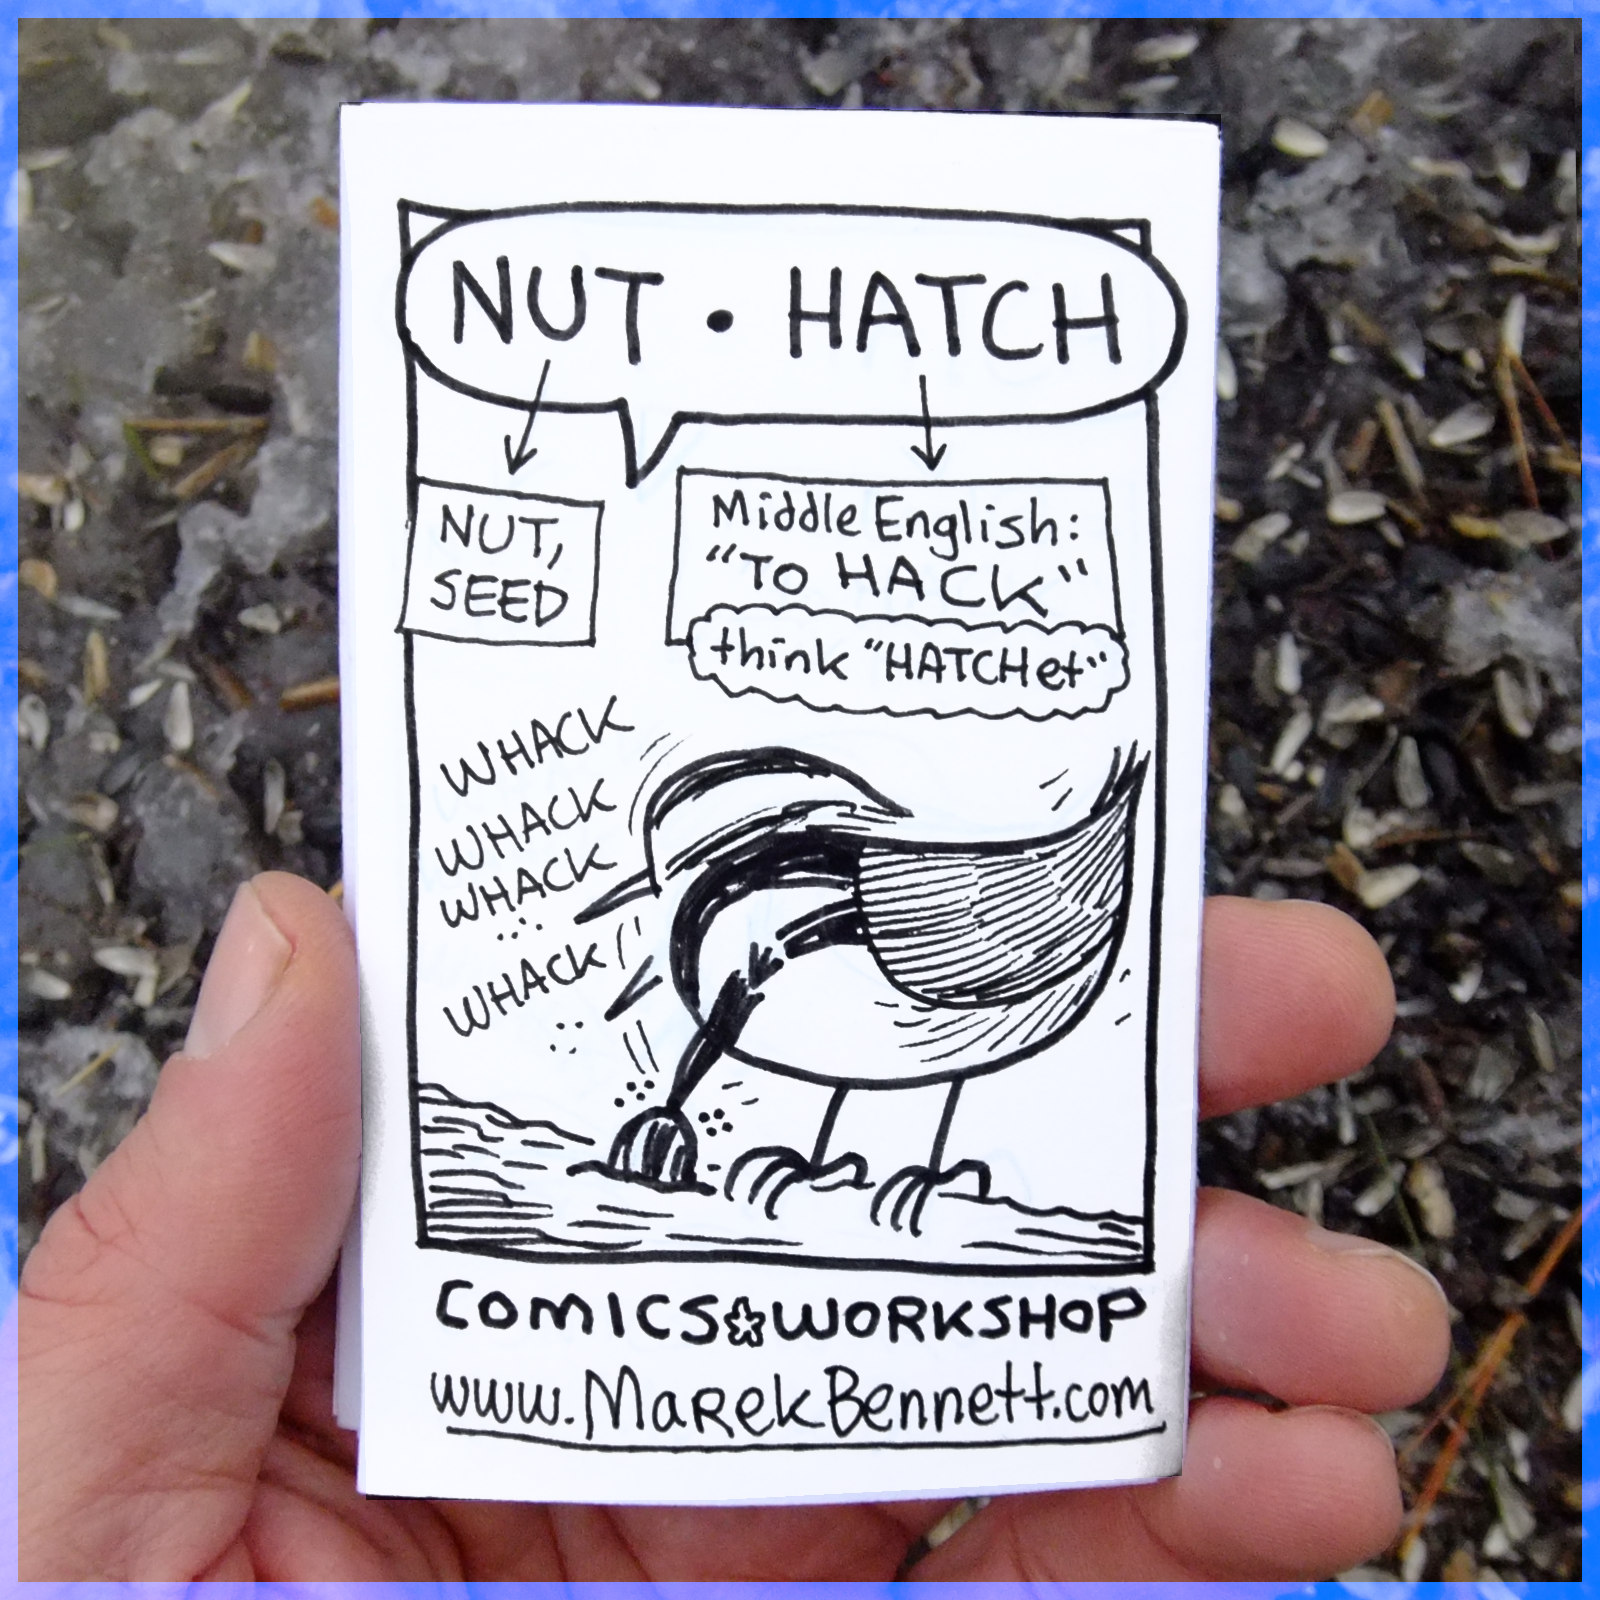 NUT • HATCH
NUT,
SEED
Middle English:
"TO HACK"
think "HATCHet"
WHACK
WHACK
WHACK
...
WHACK!
COMICS☆WORKSHOP
www.MarekBennett.com